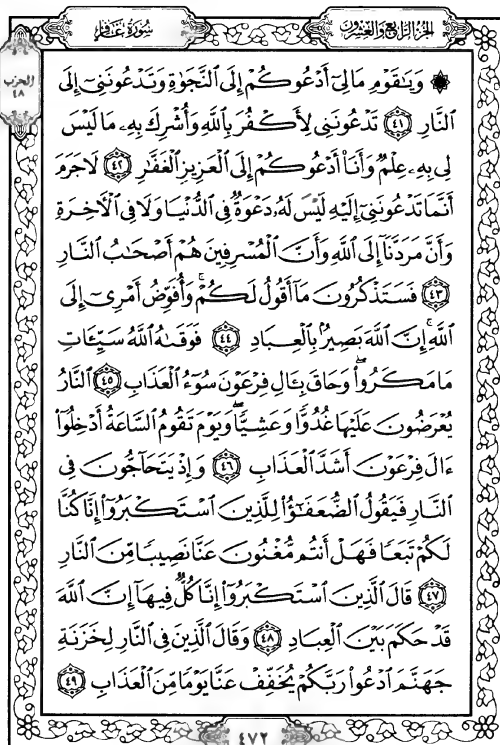 الجزء الرابع والعشرون
سورة غافر
الحزب
٤٨
۞ وَيَٰقَوْمِ مَا لِيٓ أَدْعُوكُمْ إِلَى ٱلنَّجَوٰةِ وَتَدْعُونَنِيٓ إِلَى
ٱلنَّارِ ٤١ تَدْعُونَنِي لِأَكْفُرَ بِٱللَّهِ وَأُشْرِكَ بِهِۦ مَا لَيْسَ
لِي بِهِۦ عِلْمٌ وَأَنَا۠ أَدْعُوكُمْ إِلَى ٱلْعَزِيزِ ٱلْغَفَّٰرِ ٤٢ لَا جَرَمَ
أَنَّمَا تَدْعُونَنِيٓ إِلَيْهِ لَيْسَ لَهُۥ دَعْوَةٌ فِي ٱلدُّنْيَا وَلَا فِي ٱلْأٓخِرَةِ
وَأَنَّ مَرَدَّنَآ إِلَى ٱللَّهِ وَأَنَّ ٱلْمُسْرِفِينَ هُمْ أَصْحَٰبُ ٱلنَّارِ
٤٣ فَسَتَذْكُرُونَ مَآ أَقُولُ لَكُمْۚ وَأُفَوِّضُ أَمْرِيٓ إِلَى
ٱللَّهِۚ إِنَّ ٱللَّهَ بَصِيرٌۢ بِٱلْعِبَادِ ٤٤ فَوَقَىٰهُ ٱللَّهُ سَيِّـَٔاتِ
مَا مَكَرُوا۟ۖ وَحَاقَ بِـَٔالِ فِرْعَوْنَ سُوٓءُ ٱلْعَذَابِ ٤٥ ٱلنَّارُ
يُعْرَضُونَ عَلَيْهَا غُدُوًّا وَعَشِيًّاۖ وَيَوْمَ تَقُومُ ٱلسَّاعَةُ أَدْخِلُوٓا۟
ءَالَ فِرْعَوْنَ أَشَدَّ ٱلْعَذَابِ ٤٦ وَإِذْ يَتَحَآجُّونَ فِي
ٱلنَّارِ فَيَقُولُ ٱلضُّعَفَٰٓؤُا۟ لِلَّذِينَ ٱسْتَكْبَرُوٓا۟ إِنَّا كُنَّا
لَكُمْ تَبَعًا فَهَلْ أَنتُم مُّغْنُونَ عَنَّا نَصِيبًا مِّنَ ٱلنَّارِ
٤٧ قَالَ ٱلَّذِينَ ٱسْتَكْبَرُوٓا۟ إِنَّا كُلٌّ فِيهَآ إِنَّ ٱللَّهَ
قَدْ حَكَمَ بَيْنَ ٱلْعِبَادِ ٤٨ وَقَالَ ٱلَّذِينَ فِي ٱلنَّارِ لِخَزَنَةِ
جَهَنَّمَ ٱدْعُوا۟ رَبَّكُمْ يُخَفِّفْ عَنَّا يَوْمًا مِّنَ ٱلْعَذَابِ ٤٩
٤٧٢